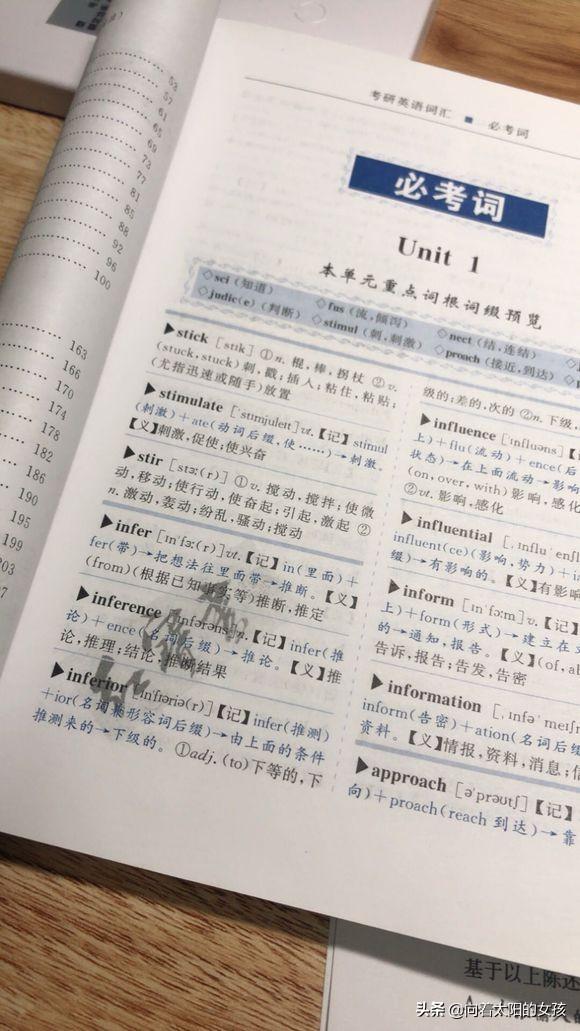 53
57
61
65
69
73
77
81
85
88
92
96
100
163
166
170
174
178
182
186
190
195
199
203
考研英语词汇 ■ 必考词
必考词
Unit 1
本单元重点词根词缀预览
◇sci (知道) ◇fus (流,倾泻) ◇nect (结,连结)
◇judic(e) (判断) ◇stimul (刺,刺激) ◇proach (接近,到达)
▶stick [stɪk] ①n. 棍,棒,拐杖 ②v.
(stuck,stuck)刺,戳;插入;粘住,粘贴;
(尤指迅速或随手)放置
▶stimulate [ˈstɪmjuleɪt]vt.【记】stimul
(刺激)+ate(动词后缀,使……)→刺激。
【义】刺激,促使;使兴奋
▶stir [stɜː(r)] ①v. 搅动,搅拌;使微
动,移动;使行动,使奋起;引起,激起 ②
n. 激动,轰动;纷乱,骚动;搅动
▶infer [ɪnˈfɜː(r)]vt.【记】in(里面)+
fer(带)→把想法往里面带→推断。【义】
(from)(根据已知事实等)推断,推定
▶inference [ˈɪnfərəns]n.【记】infer(推
论)+ence(名词后缀)→推论。【义】推
论,推理;结论,推断结果
▶inferior [ɪnˈfɪəriə(r)]【记】infer(推测)
+ior(名词兼形容词后缀)→由上面的条件
推测来的→下级的。①adj. (to)下等的,下
级的;差的,次的 ②n. 下级,
▶influence [ˈɪnfluəns]【
上)+flu(流动)+ence(后
状态)→在上面流动→影响
(on,over,with)影响,感化
②vt. 影响,感化
▶influential [ˌɪnfluˈenʃl
influent(ce)(影响,势力)+i
缀)→有影响的。【义】有影响
▶inform [ɪnˈfɔːm]v.【
上)+form(形式)→建立在
的→通知,报告。【义】(of,ab
告诉,报告;告发,告密
▶information [ˌɪnfəˈmeɪʃn
inform(告密)+ation(名词后缀
资料。【义】情报,资料,消息;信
▶approach [əˈprəʊtʃ]【
向)+proach(reach 到达)→靠
基于以上陈述
头条 @向着太阳的女孩